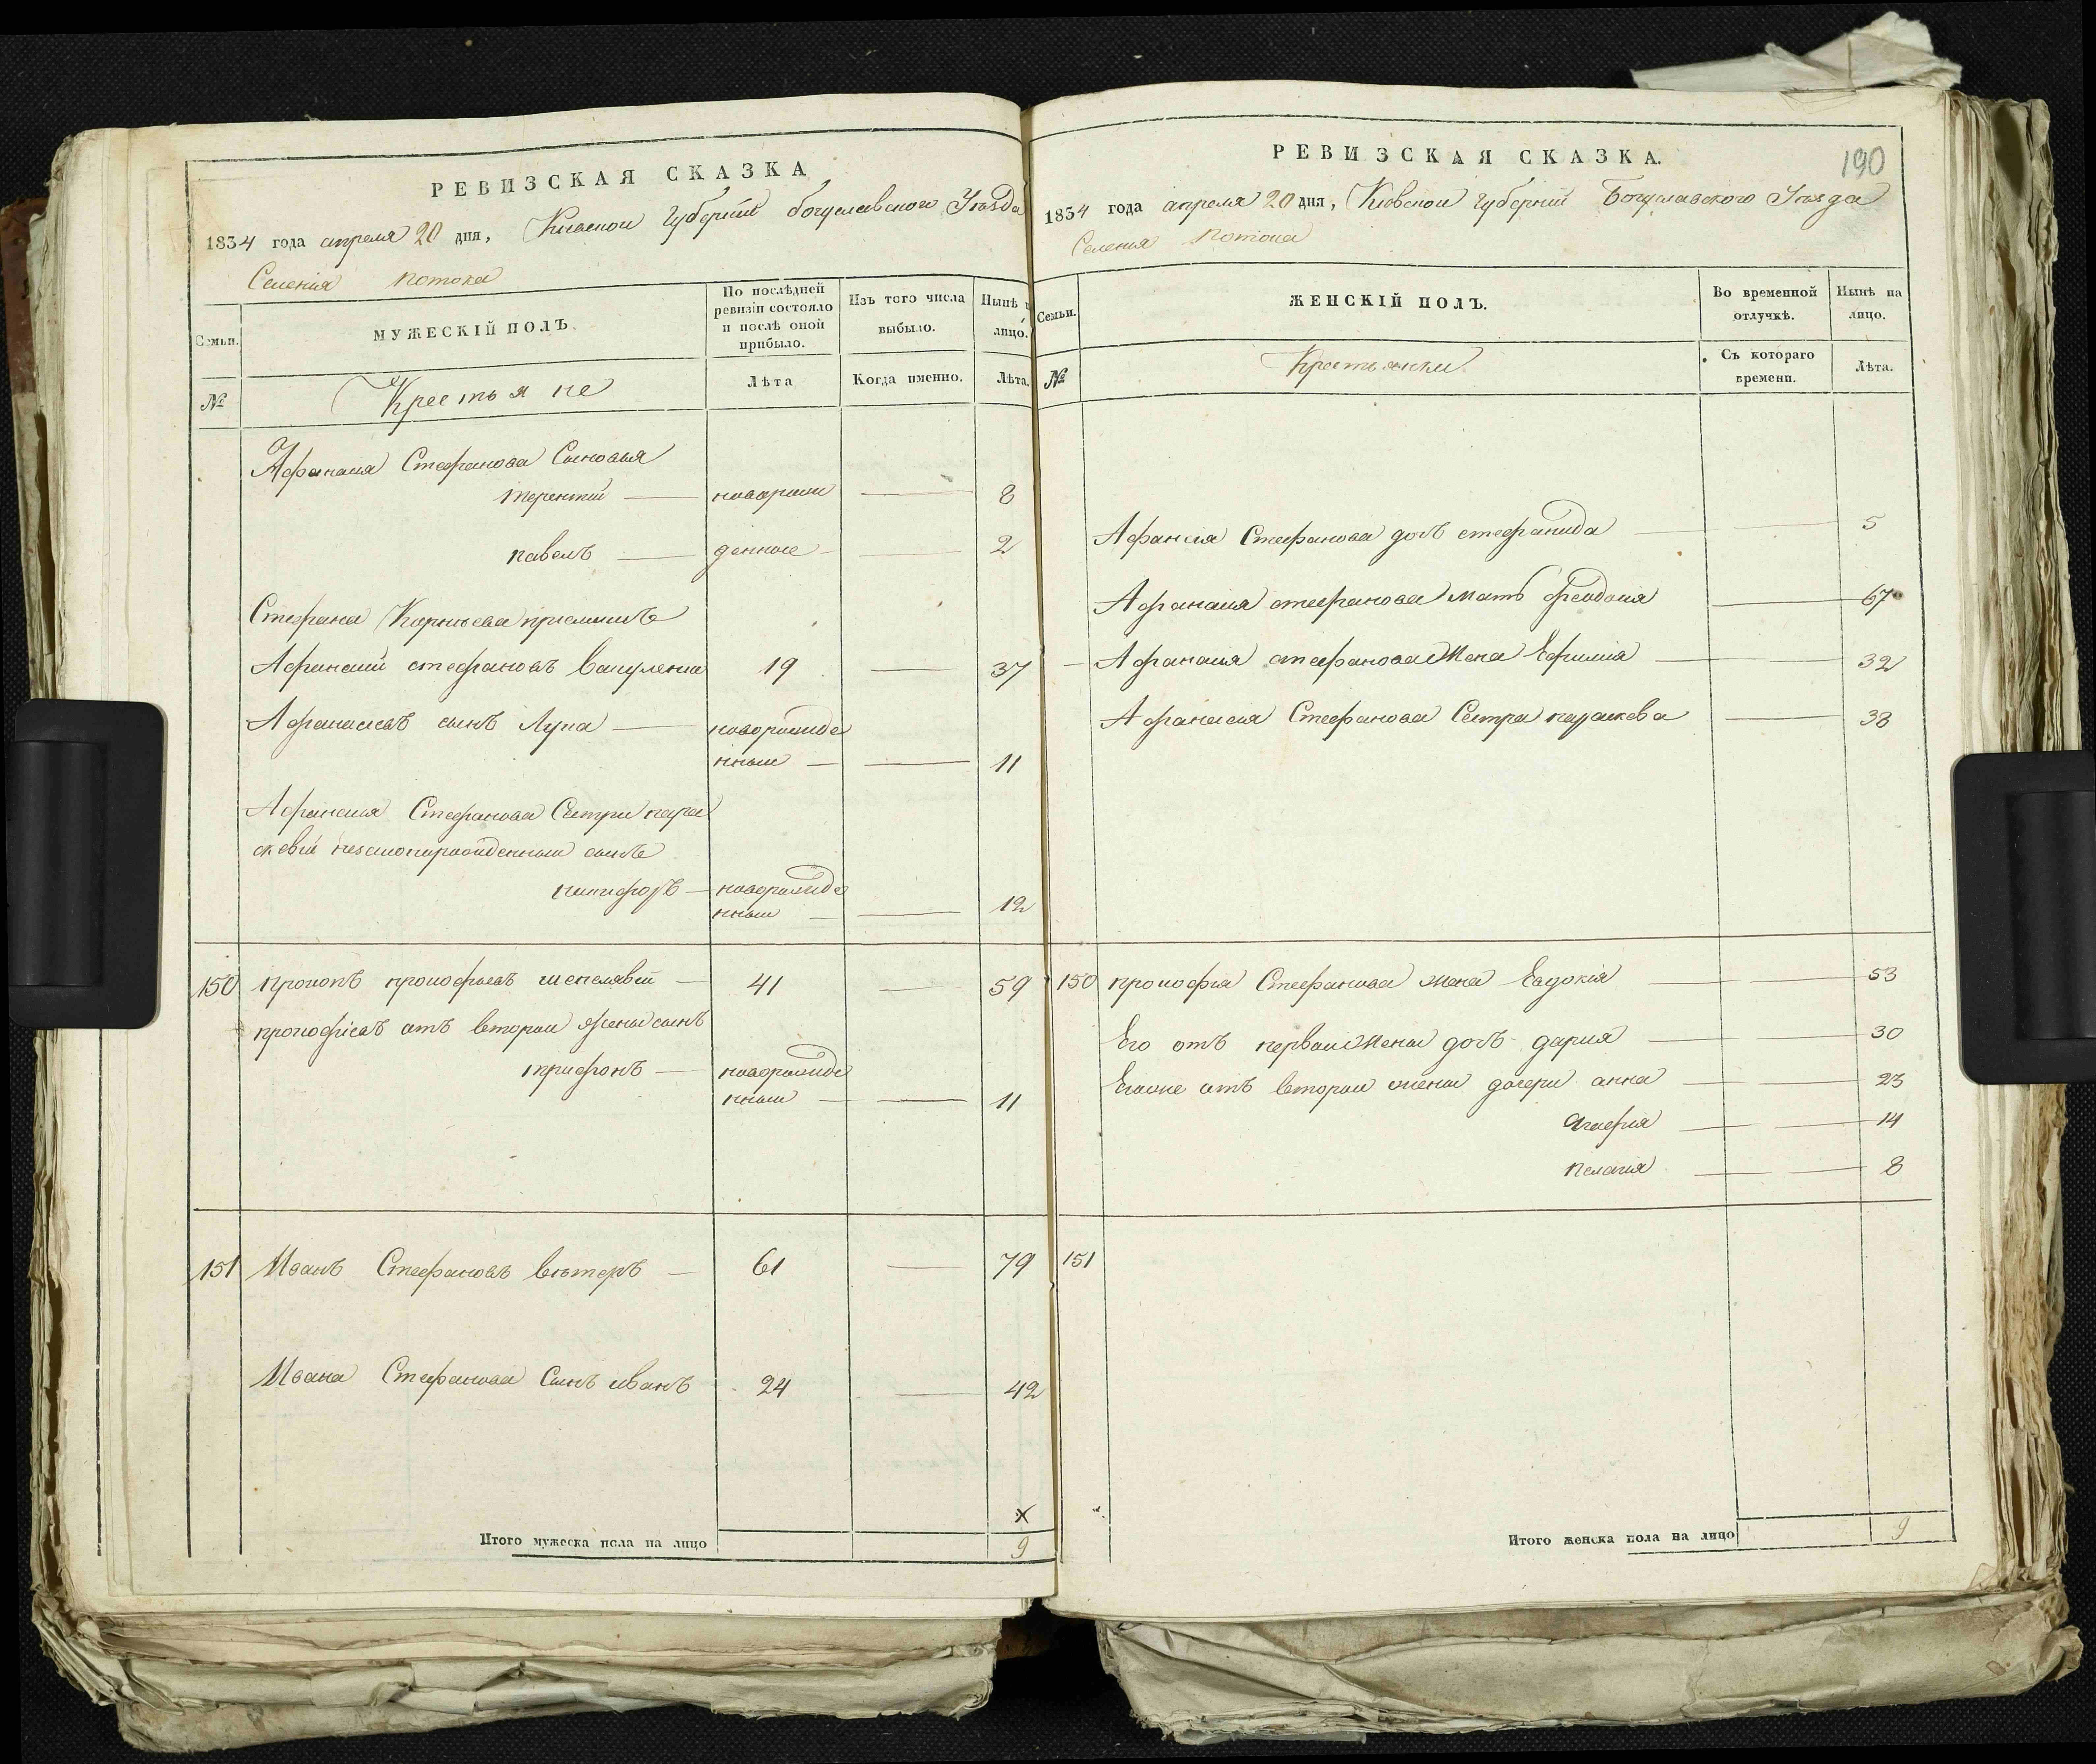 РЕВИЗСКАЯ СКАЗКА
1834 года апреля 20 дня, Киевской Губернии богуславского Уезда
Селения потока
Семьи.
МУЖЕСКІЙ ПОЛЪ.
По послѣдней ревизіи состояло и послѣ оной прибыло.
Изъ того числа выбыло.
Нынѣ
лицо.
№
Крестьяне
Лѣта
Когда именно.
Лѣта.
Афанасия Стефанова Сыновья
терентий — новорож — 8
павелъ — денные — 2
Стефана Корнъева приемышъ
Афанасий стефановъ 19 — 37
Афанасиевъ сынъ Лука — новорожде
нный — — 11
Афанасия Стефанова Сестры пара
скевии незаконнорожденный сынъ
никифоръ — новорожде
нный — — 12
150 прокопъ прокофьевъ шепелявый — 41 — 59
прокофіевъ отъ второй жены сынъ
трифонъ — новорожде
нный — — 11
151 Иванъ Стефановъ вътеръ — 61 — 79
Ивана Стефанова Сынъ иванъ 24 — 42
x
Итого мужеска пола на лицо 9
190
РЕВИЗСКАЯ СКАЗКА.
1834 года апреля 20 дня, Кіевской губерніи Богуславского Уезда
Селения Потока
Семьи.
ЖЕНСКІЙ ПОЛЪ.
Во временной отлучкѣ.
Нынѣ на лицо.
№
Крестьянки
Съ котораго времени.
Лѣта.
Афанасия Стефанова дочъ стефанида — — 5
Афанасия стефанова мать феодосия — 67
Афанасия стефанова жена Ефимия — — 32
Афанасия Стефанова Сестра параскева — 38
150 прокофия Стефанова жена Евдокія — — 53
Его отъ первой жены дочъ дария — — 30
Егоже отъ второй жены дочери анна — — 23
агафия — — 14
пелагия — — 8
151
Итого женска пола на лицо 9